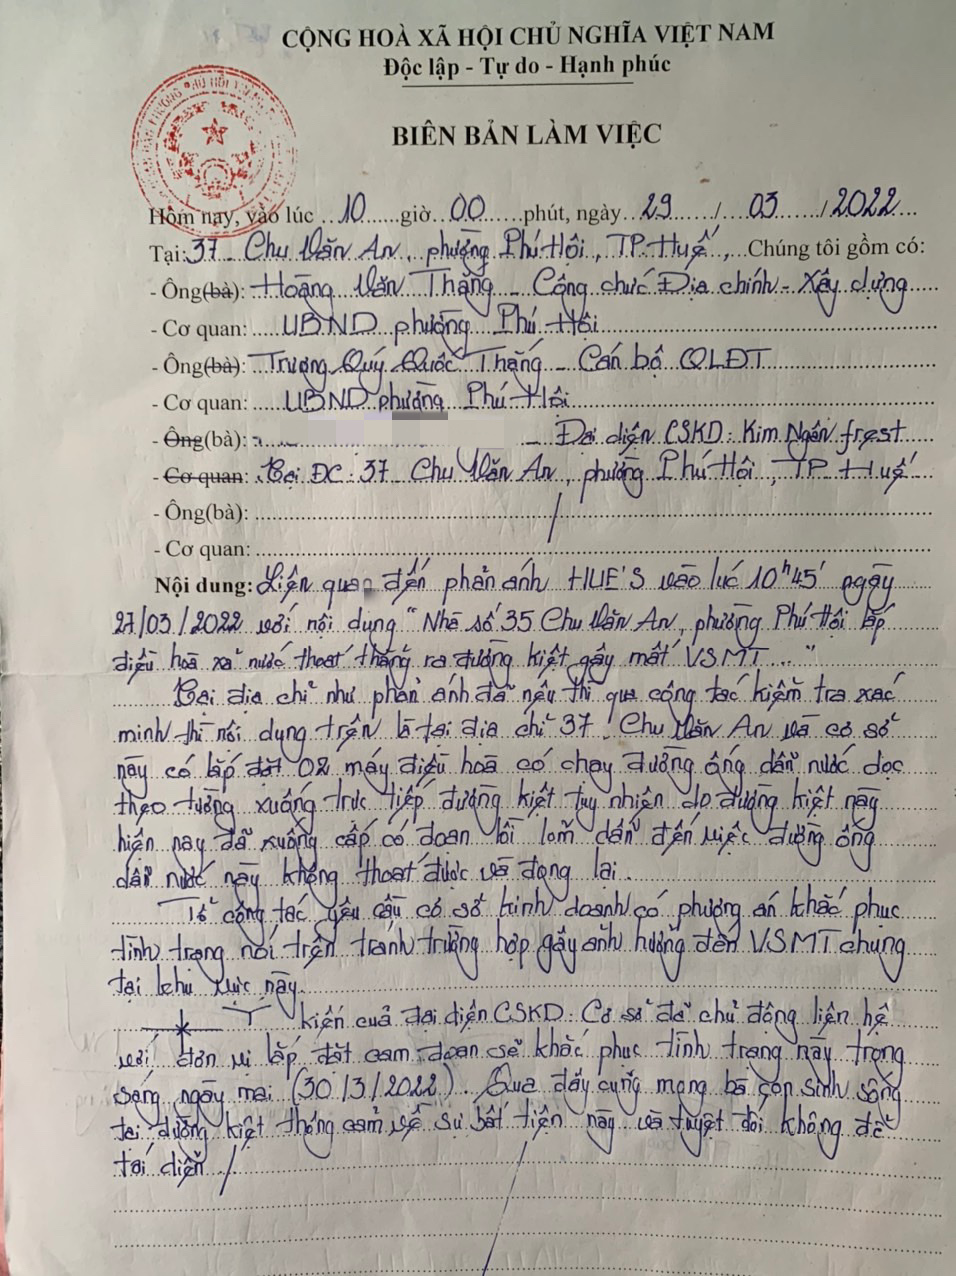 CỘNG HOÀ XÃ HỘI CHỦ NGHĨA VIỆT NAM
Độc lập - Tự do - Hạnh phúc
BIÊN BẢN LÀM VIỆC
Hôm nay, vào lúc 10 giờ 00 phút, ngày 29 / 03 / 2022
Tại: 37 Chu Văn An, phường Phú Hội, TP. Huế, Chúng tôi gồm có:
- Ông(bà): Hoàng Văn Thặng - Công chức Địa chính - Xây dựng
- Cơ quan: UBND phường Phú Hội
- Ông(bà): Trương Quý Quốc Thắng - Cán bộ QLĐT
- Cơ quan: UBND phường Phú Hội
- Ông(bà): - Đại diện CSKD: Kim Ngân frest
- Cơ quan: Tại ĐC: 37 Chu Văn An, phường Phú Hội, TP. Huế
- Ông(bà):
- Cơ quan:
Nội dung: Liên quan đến phản ánh HUE'S vào lúc 10h45' ngày
27/03/2022 với nội dung "Nhà số 35 Chu Văn An, phường Phú Hội lắp
điều hoà xả nước thoát thẳng ra đường kiệt gây mất VSMT..."
Tại địa chỉ như phản ánh đã nêu thì qua công tác kiểm tra xác
minh thì nội dung trên là tại địa chỉ 37 Chu Văn An và cơ sở
này có lắp đặt 02 máy điều hoà có chạy đường ống dẫn nước dọc
theo tường xuống trực tiếp đường kiệt tuy nhiên do đường kiệt này
hiện nay đã xuống cấp có đoạn lồi lõm dẫn đến việc đường ống
dẫn nước này không thoát được và đọng lại.
Tổ công tác yêu cầu cơ sở kinh doanh có phương án khắc phục
tình trạng nói trên tránh trường hợp gây ảnh hưởng đến VSMT chung
tại khu vực này.
Ý kiến của đại diện CSKD: Cơ sở đã chủ động liên hệ
với đơn vị lắp đặt cam đoan sẽ khắc phục tình trạng này trong
sáng ngày mai (30/3/2022). Qua đây cũng mong bà con sinh sống
tại đường kiệt thông cảm về sự bất tiện này và tuyệt đối không để
tái diễn.